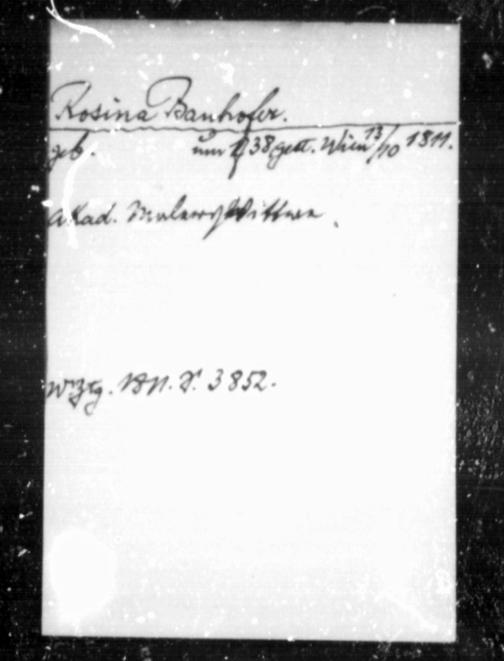 Rosina Banhofer.
geb. um 1738 gest. Wien 13/10 1811.
akad. Malers Wittwe.
W. Ztg. 1811. S. 3852.